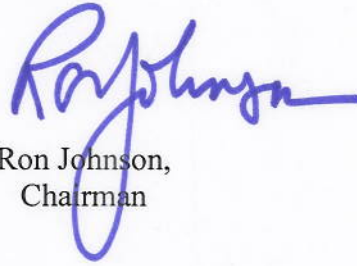 Ron Johnson
Ron Johnson,
Chairman